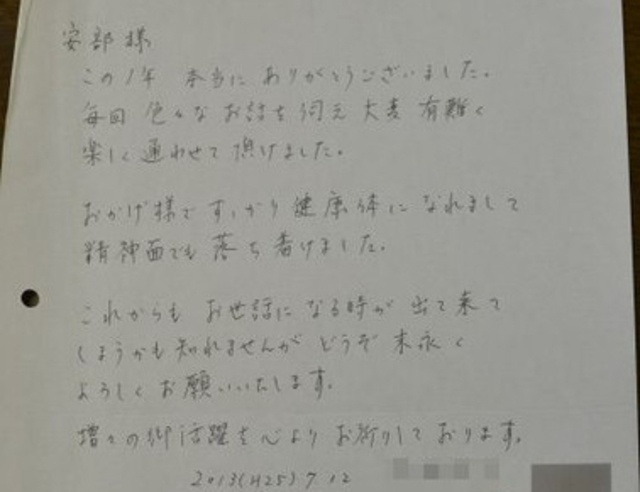 安部様
この1年 本当に ありがとうございました。
毎回 色々な お話を伺え 大変 有難く
楽しく 通わせて 頂けました。
おかげ様で すっかり 健康体に なれまして
精神面でも 落ち着けました。
これからも お世話に なる時が 出て来て
しまうかも知れませんが どうぞ 末永く
よろしく お願いいたします。
増々の御活躍を心より お祈りして おります。
2013(H25) 7 12